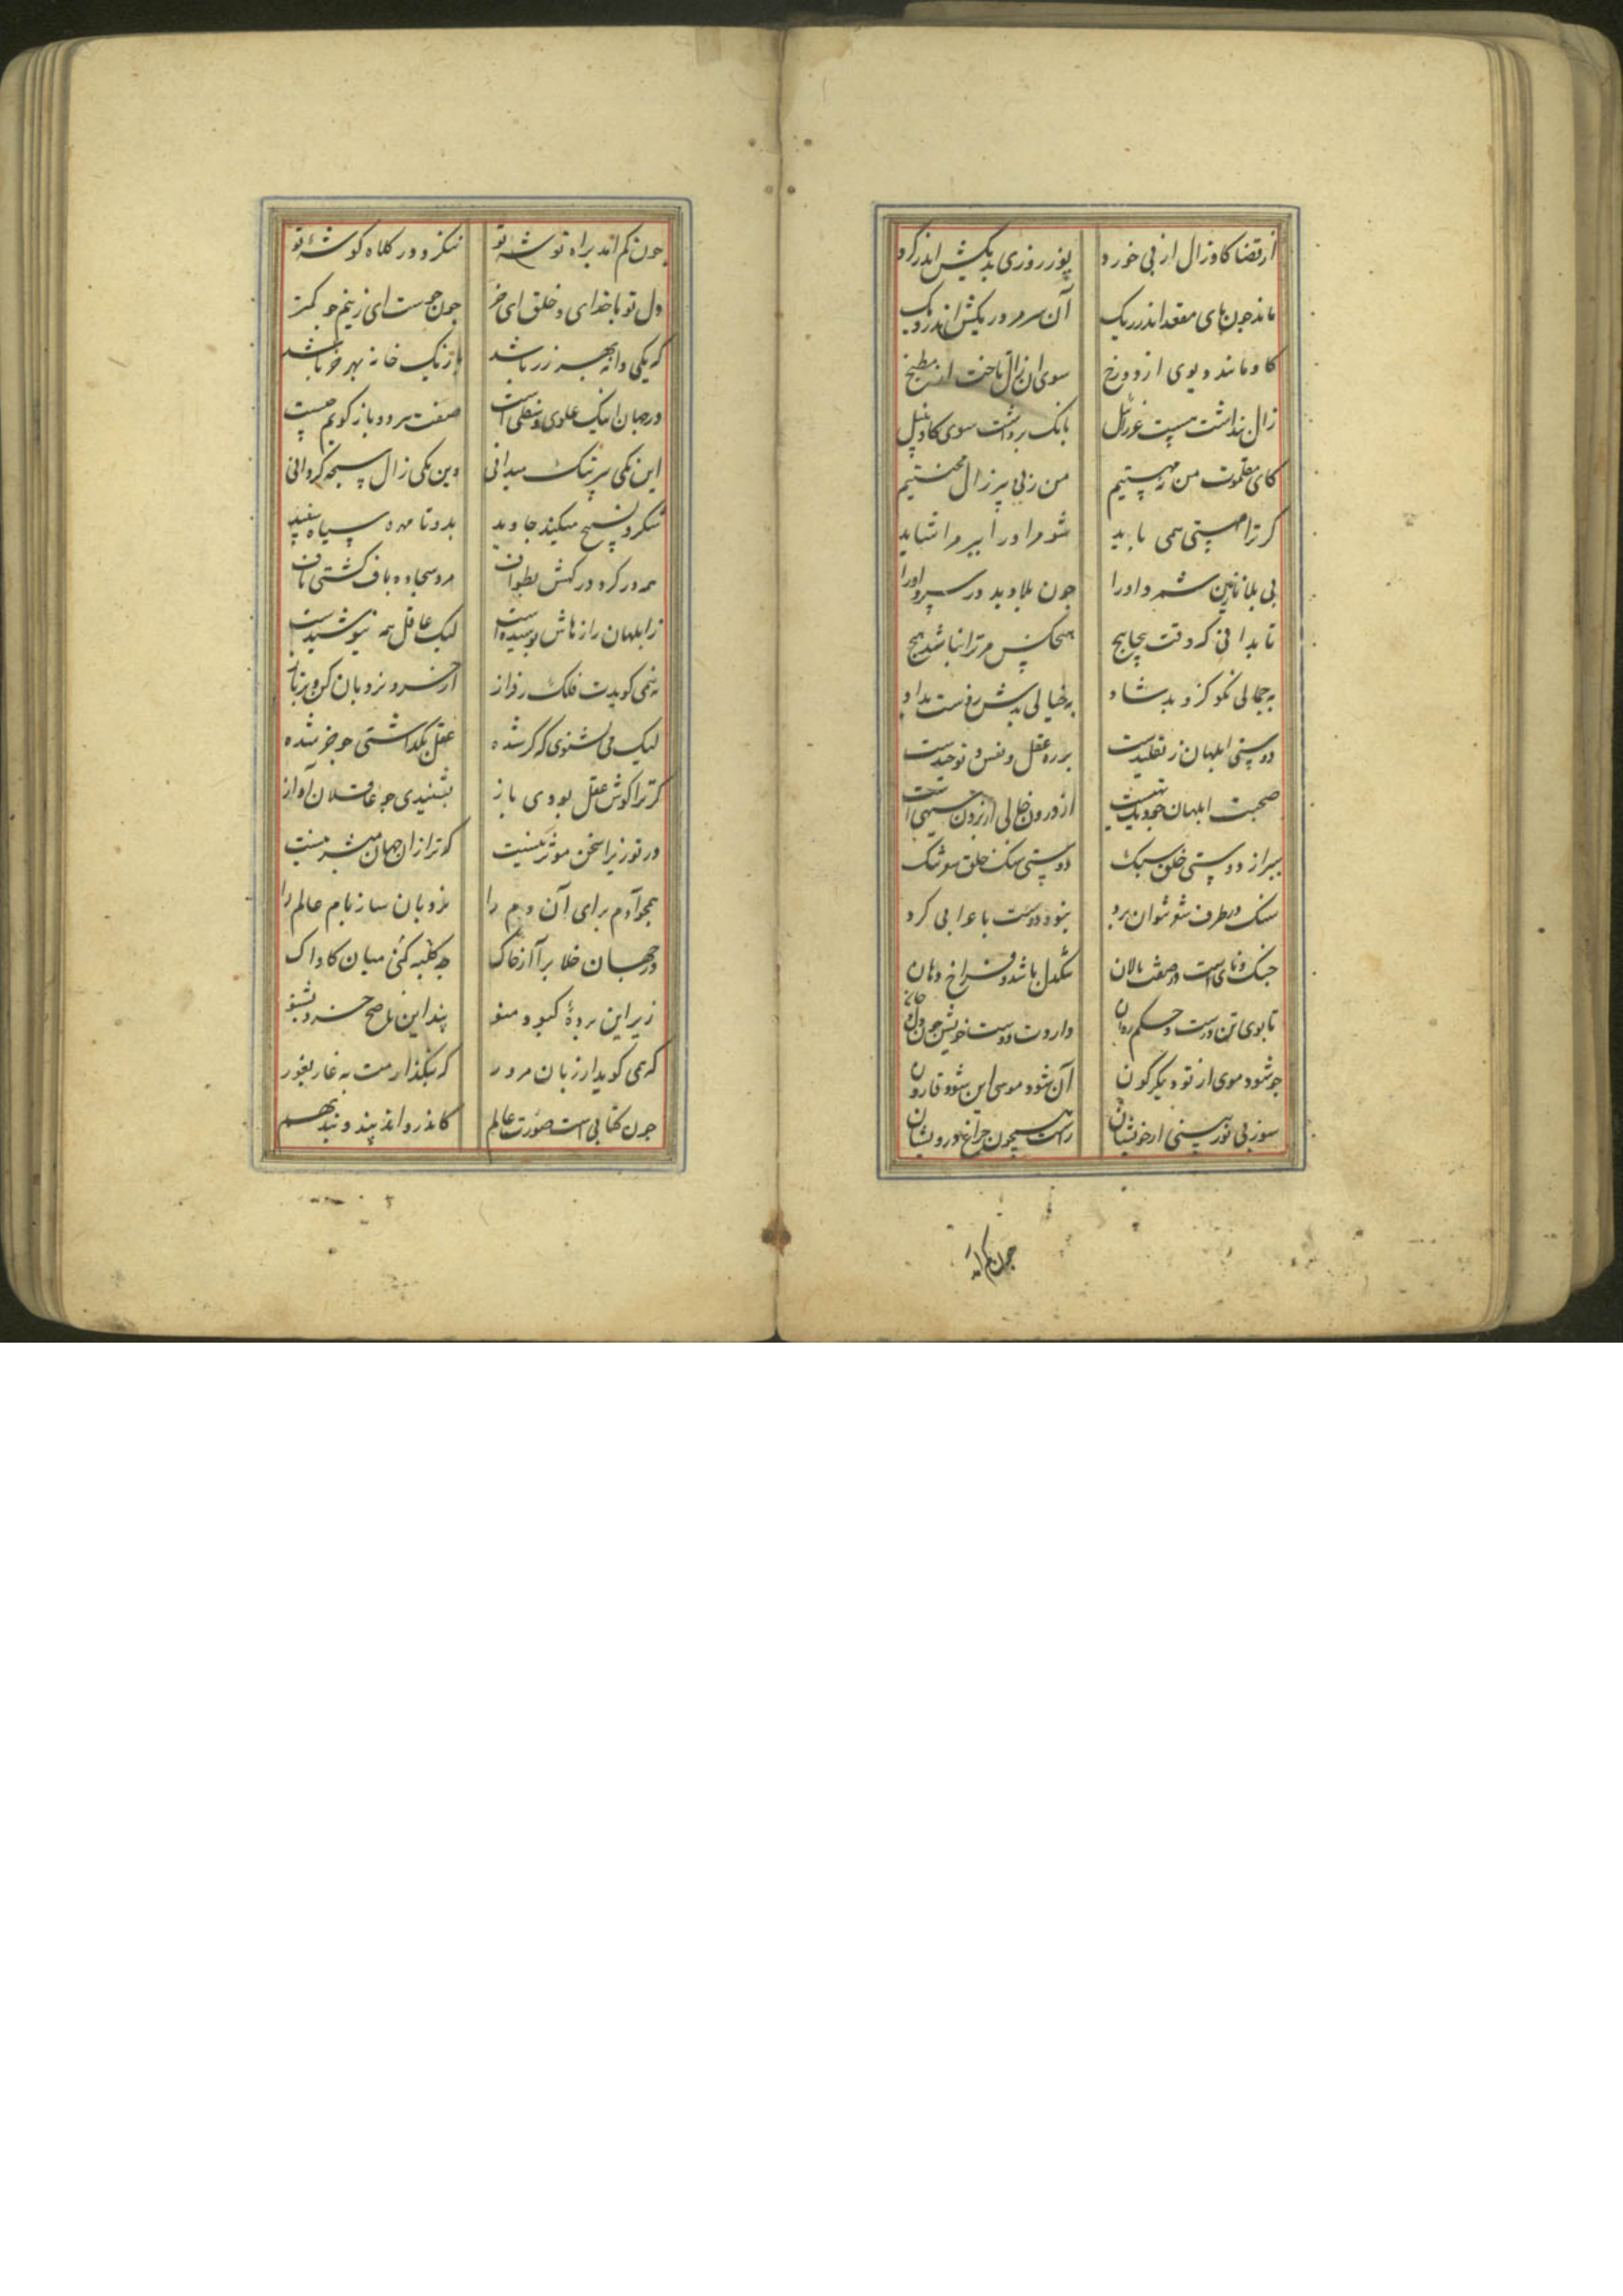 از قضا کاو زال از پی خورد پوز روزی بدیکش اندر کرد
ماند چون پای مقعد اندر ریک آن سر مرد ریکش اندر دیک
کاو مانند دیوی از دوزخ سوی آن زال تاخت از مطبخ
زال پنداشت هست عزرائیل بانک برداشت سوی کاو نبیل
کای مقلموت من نه مهستیم من یکی پیر زال محنتیم
کر ترا مهستی همی باید شو مر او را ببر مرا شاید
بی بلا نازنین شمرد او را چون بلا دید در سپرد او را
تا بدانی که وقت پیچاپیچ هیچکس مر ترا نباشد هیچ
به جمالی نکو کزو بد شاد به خیالی بدش ز دست بداد
دوستی ابلهان ز تقلیدست بر ره عقل و نفس و توحیدست
صحبت ابلهان چو دیک تهیست از درون خالی از برون سیهی است
ببر از دوستی خلق سبک دوستی سک خلق سوشک
سنک در طرف شو شوان برد نبود دوست با عوابی کرد
چنک و نای است در صفت بالان تنکدل باشد و فراخ دهان
تا بوی تن درست و حکم روان داردت دوست خویش چون دل و جان
چو شود موی از تو دیگرگون آن شود موسی این شود قارون
سوز بی نور بینی از خویشان راست همچون چراغ درویشان
چون کم اند
چون کم آمد براه توشه تو ننکرد در کلاه کوشه تو
دل تو با خدای و خلق ای خر چون جوست ای ز نیم جو کمتر
که یکی دانه بهر زر باشد باز یک خانه بهر خر باشد
در جهان اینک علوی و سفلی است صفت هر دو باز کویم چیست
این یکی پیر نیک میدانی وین یکی زال سبحه کردانی
شکر و تسبیح میکند جاوید بدو تا مهره سیاه سفید
همه در کرد در کهش بطواف مرد سجاده باف کشتی باف
ز ابلهان رازهاش پوسیده است لیک عاقل همه نیوشیدست
نه همی کویدت فلک ز فراز از خرد نردبان کن و بر تاز
لیک می نشنوی که کر شده عقل بکذاشتی چو خر شده
کر ترا کوش عقل بودی باز بشنیدی چو عاقلان آواز
در تو زیرا سخن موثر نیست که ترا زان جهان مبشر نیست
همچو آدم برای آن دم را نردبان ساز بام عالم را
در جهان خلا برآ از خاک چه کلبه کنی میان کاواک
زیر این پرده کبود منو پند این ناصح خرد بشنو
که همی کوید از زبان مرور که بنکذارمت به غار غرور
چون کتابی است صورت عالم کاندرو اند پند و بند بهم